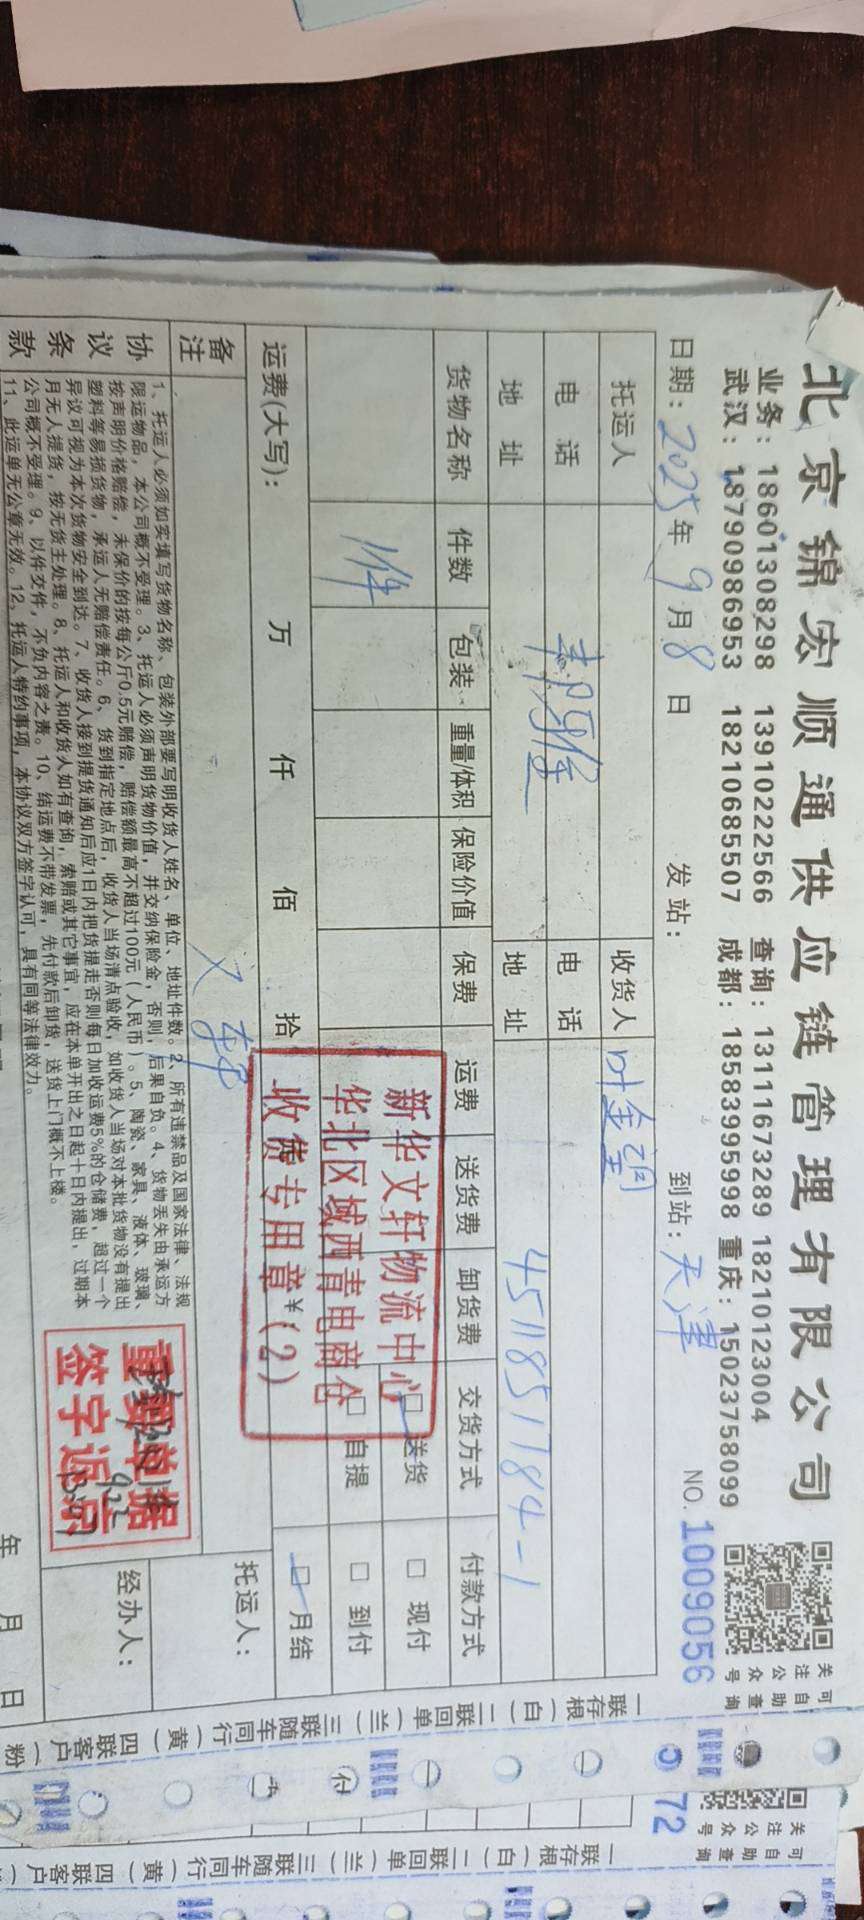 北京锦宏顺通供应链管理有限公司
业务：18601308298 13910222566 查询：13111673289 18210123004
武汉：18790986953 18210685507 成都：18583995998 重庆：15023758099
关注公众号
可自助查询
日期：2025年9月8日 发站： 到站：天津 NO.1009056
托运人 收货人 叶金望
电话 电话
地址 地址 4511851784-1
货物名称 件数 包装 重量/体积 保险价值 保费 运费 送货费 卸货费 交货方式 付款方式
1件 □送货 □现付
□自提 □到付
运费(大写)： 万 仟 佰 拾 ¥： □月结
新华文轩物流中心
华北区域西青电商仓
收货专用章(2)
备注
托运人：
重要单据
签字返京
协议条款
1、托运人必须如实填写货物名称、包装外部要写明收货人姓名、单位、地址件数。2、所有违禁品及国家法律、法规
限运物品，本公司概不受理。3、托运人必须声明货物价值，并交纳保险金，否则，后果自负。4、货物丢失由承运方
按声明价格赔偿，未保价的按每公斤0.5元赔偿，赔偿额最高不超过100元（人民币）。5、陶瓷、家具、液体、玻璃、
塑料等易损货物，承运人无赔偿责任。6、货到指定地点后，收货人当场清点验收，如收货人当场对本批货物没有提出
异议可视为本次货物安全到达。7、收货人接到提货通知后应1日内把货提走否则每日加收运费5%的仓储费，超过一个
月无人提货，按无货主处理。8、托运人和收货人如有查询，索赔或其它事宜，应在本单开出之日起十日内提出，过期本
公司概不受理。9、以件交件，不负内容之责。10、结运费不带发票，先付款后卸货，送货上门概不上楼。
11、此运单无公章无效。12、托运人特约事项，本协议双方签字认可，具有同等法律效力。
经办人：
年 月 日
一联存根（白）二联回单（兰）三联随车同行（黄）四联客户（粉
72
关注公众号
可自助查询
一联存根（白）二联回单（兰）三联随车同行（黄）四联客户